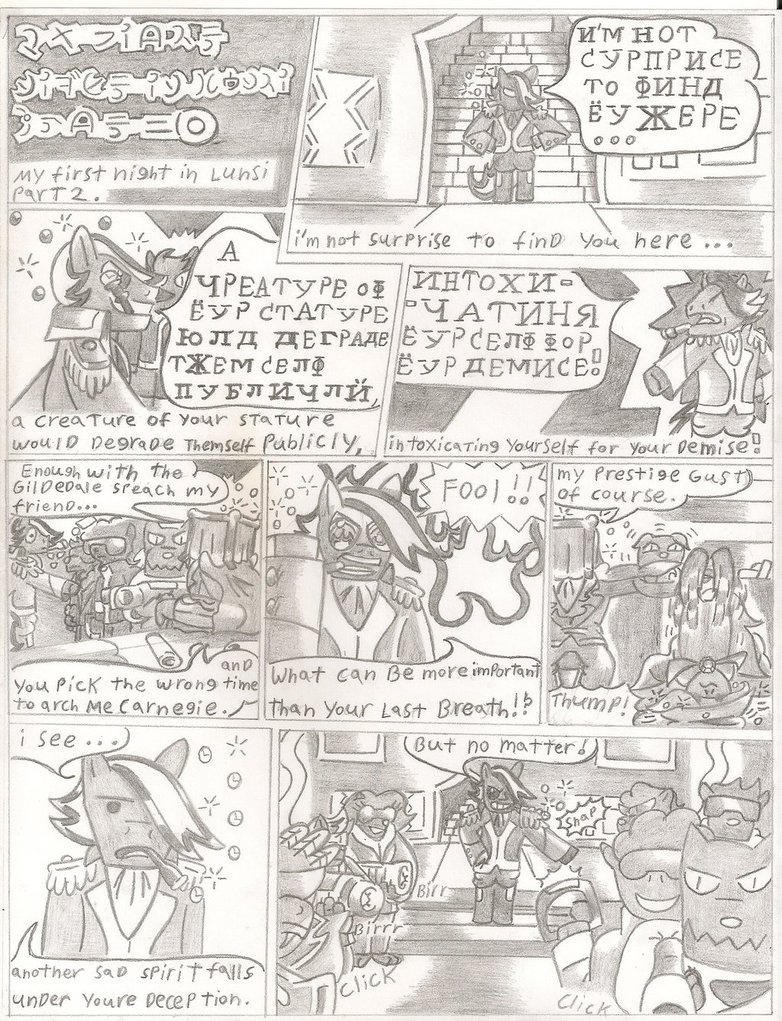 my first night in Lunsi
part 2.
И'М НОТ
СУРПРИСЕ
ТО ФИНД
ЁУ ЖЕРЕ
...
i'm not surprise to find you here ...
А
ЧРЕАТУРЕ ОФ
ЁУР СТАТУРЕ
ЮЛД ДЕГРАДЕ
ТЖЕМ СЕЛФ
ПУБЛИЧЛЙ,
a creature of your stature
would degrade themself publicly,
ИНТОХИ-
-ЧАТИНЯ
ЁУР СЕЛФ ФОР
ЁУР ДЕМИСЕ!
intoxicating yourself for your demise!
Enough with the
Gildedale spreach my
friend...
and
you pick the wrong time
to arch me Carnegie.
Fool!!
What can be more important
than your last breath!?
my prestige Gust
of course.
Thump!
i see...
another sad spirit falls
under youre deception.
But no matter!
Snap
Birr
Birrr
Click
Click